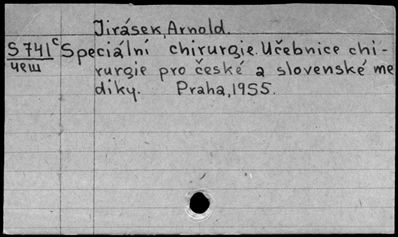 Jirásek, Arnold.
S 741 c Speciální chirurgie. Učebnice chi-
чеш rurgie pro české a slovenské me
diky. Praha, 1955.